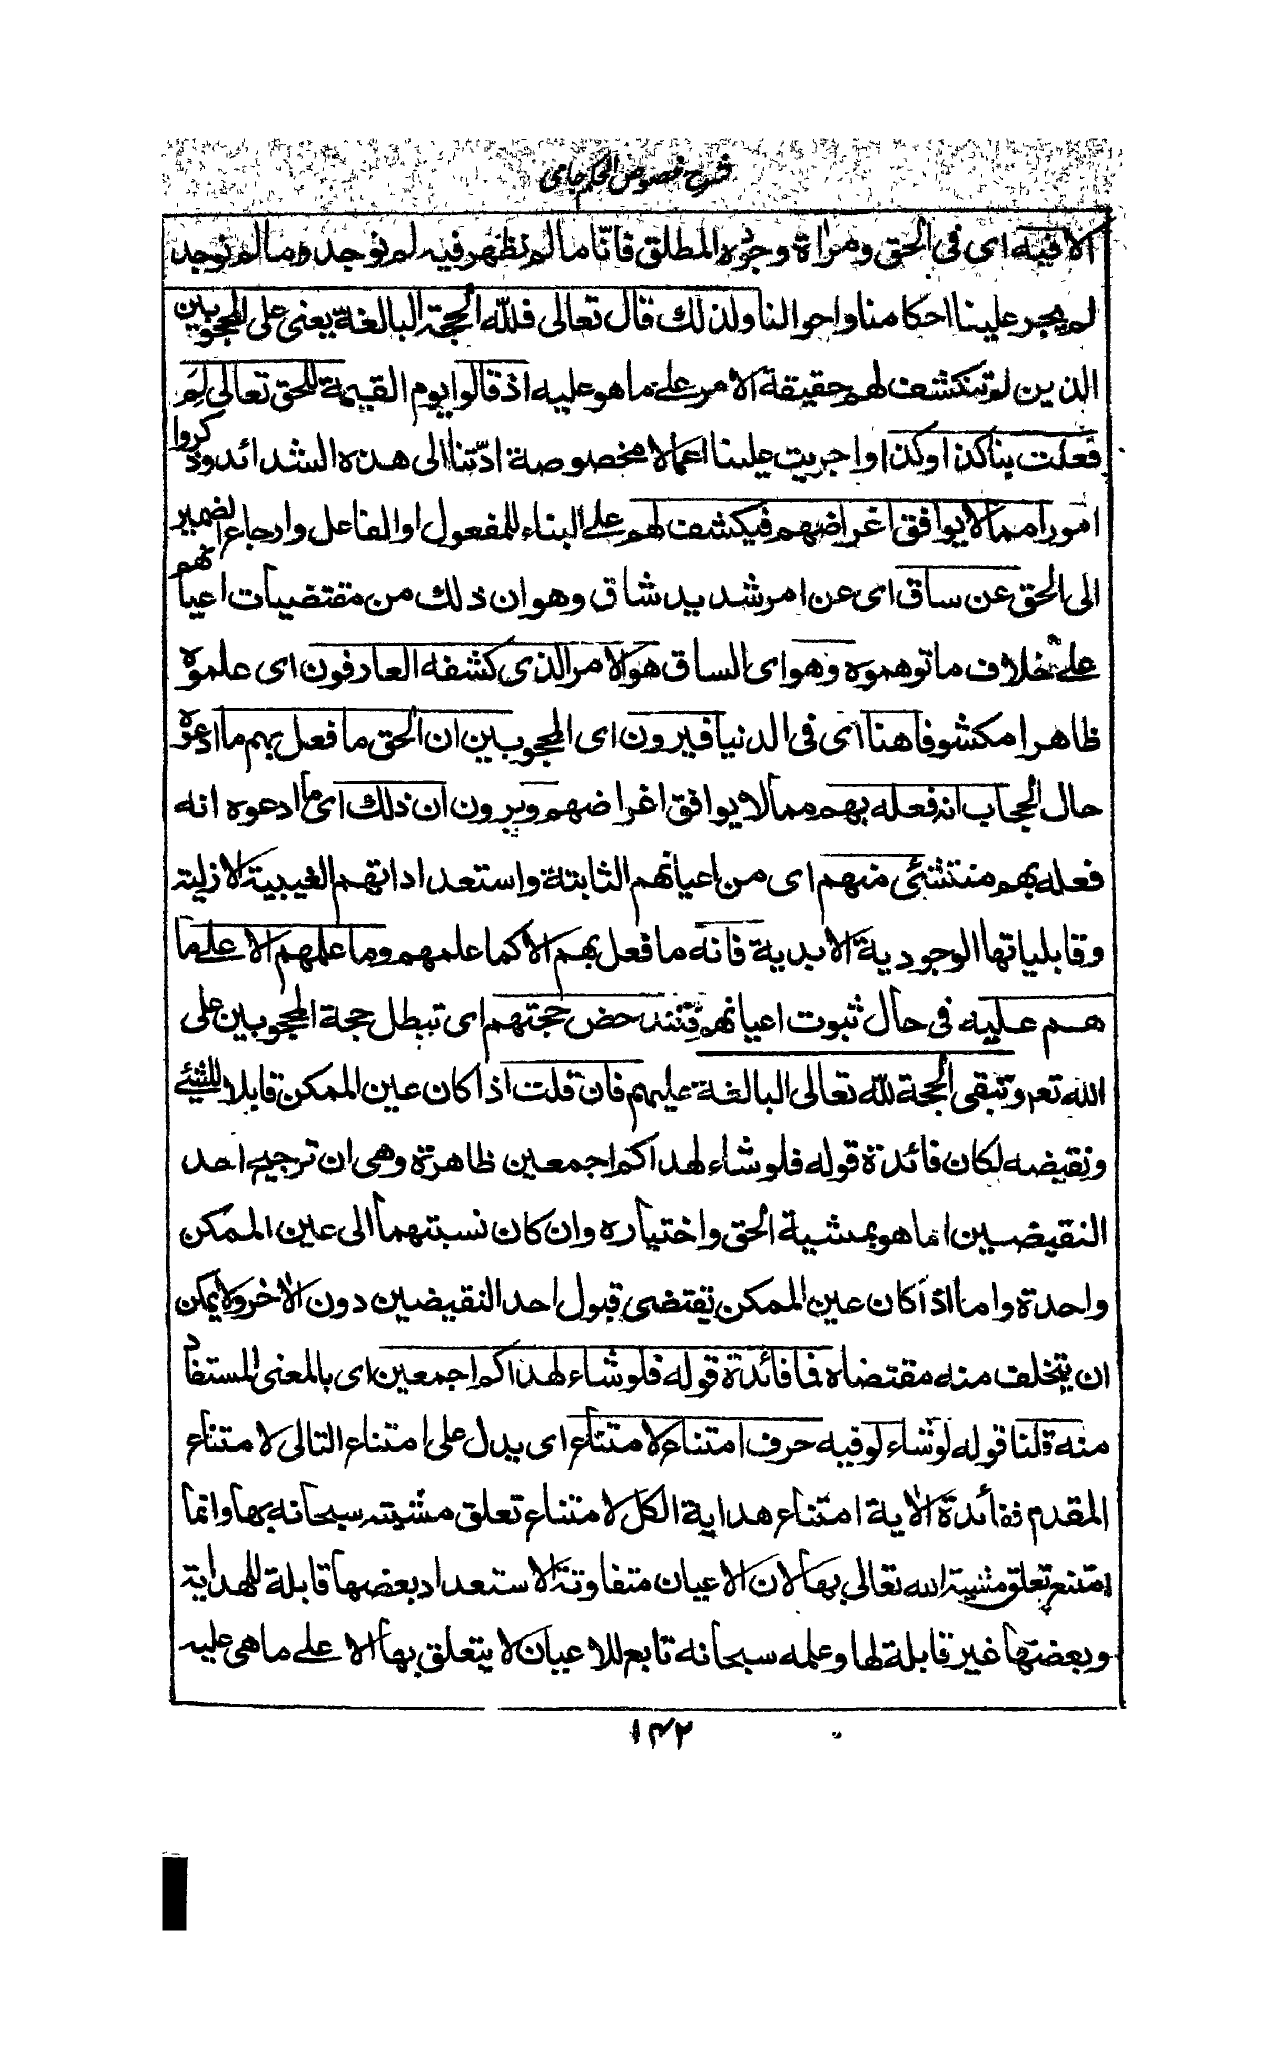 شرح فصوص الحكم جامى
الا فيه اى فى الحق ومراة وجوده المطلق فانّا ما لم نظهر فيه لم نوجد وما لم نوجد
لم يجر علينا احكامنا واحوالنا ولذلك قال تعالى فللّه الحجة البالغة يعنى على المحجوبين
الذين لم تنكشف لهم حقيقة الامر على ما هو عليه اذ قالوا يوم القيمة للحق تعالى لِمَ
فعلت بنا كذا وكذا واجريت علينا اعمالا مخصوصة ادّتنا الى هذه الشدائد وذكروا
امورا مما لا يوافق اغراضهم فيكشف لهم على البناء للمفعول او الفاعل وارجاع الضمير
الى الحق عن ساق اى عن امر شديد شاق وهو ان ذلك من مقتضيات اعيانهم
على خلاف ما توهموه وهو اى الساق هو الامر الذى كشفه العارفون اى علموه
ظاهرا مكشوفا هنا اى فى الدنيا فيرون اى المحجوبين ان الحق ما فعل بهم ما ادعوه
حال الحجاب انه فعله بهم مما لا يوافق اغراضهم ويرون ان ذلك اى ما ادعوه انه
فعله بهم منتشئ منهم اى من اعيانهم الثابتة واستعداداتهم الغيبية الازلية
وقابلياتها الوجودية الابدية فانه ما فعل بهم الا كما علمهم وما علمهم الا على ما
هم عليه فى حال ثبوت اعيانهم فتندحض حجتهم اى تبطل حجة المحجوبين على
الله تعم وتبقى الحجة للّه تعالى البالغة عليهم فان قلت اذا كان عين الممكن قابلا للشئ
ونقيضه لكان فائدة قوله فلو شاء لهداكم اجمعين ظاهرة وهى ان ترجيح احد
النقيضين انما هو بمشية الحق واختياره وان كان نسبتهما الى عين الممكن
واحدة واما اذا كان عين الممكن تقتضى قبول احد النقيضين دون الاخر ولا يمكن
ان يتخلف منه مقتضاه فما فائدة قوله فلو شاء لهداكم اجمعين اى بالمعنى المستفاد
منه قلنا قوله لو شاء لو فيه حرف امتناع لامتناع اى يدل على امتناع التالى لامتناع
المقدم ففائدة الاية امتناع هداية الكل لامتناع تعلق مشيته سبحانه بها وانما
امتنع تعلق مشية الله تعالى بها لان الاعيان متفاوتة الاستعداد بعضها قابلة للهداية
وبعضها غير قابلة لها وعلمه سبحانه تابع للاعيان لا يتعلق بها الا على ما هى عليه
١٤٢